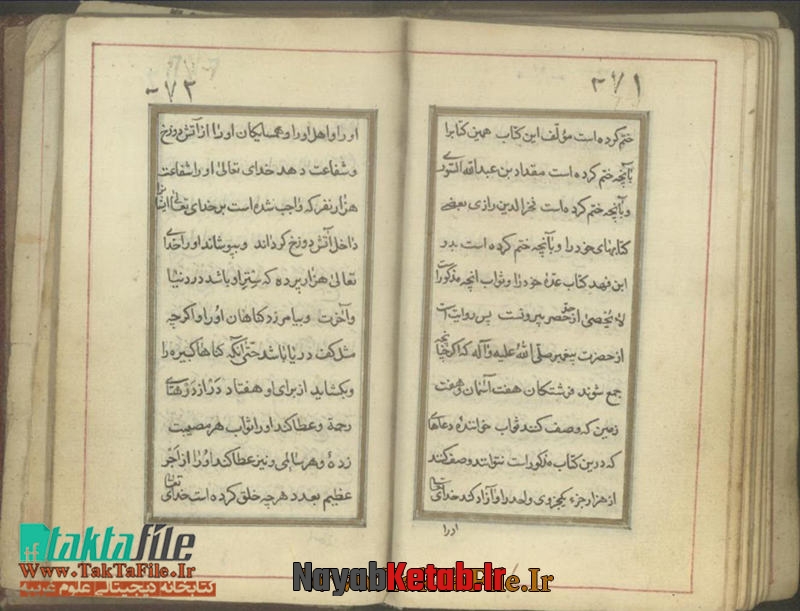 ۲۷۱
ختم کرده است مؤلف این کتاب همین کتابرا
بآنچه ختم کرده است مقداد بن عبدالله السّیوری
و بآنچه ختم کرده است فخرالدین رازی بعضی
کتابهای خود را و بآنچه ختم کرده است
ابن فهد کتاب عدّهٔ خود را و ثواب آنچه مذکور است
لا یُحصیٰ از حدّ حصر بیرونست پس روایت است
از حضرت پیغمبر صلّی اللهُ علیه و آله که اگر چنانچه
جمع شوند فرشتکان هفت آسمان و هفت
زمین که وصف کنند ثواب خوانندهٔ دعاهای
که درین کتاب مذکور است نتوانند وصف کنند
از هزار جزء یکجزوی واحد را و آزاد کند خدای تعالی
اورا
۲۷۲
او را و اهل او را و همسایکان او را از آتش دوزخ
و شفاعت دهد خدای تعالیٰ او را شفاعت
هزار نفر که واجب شده است بر خدای تعالیٰ ایشانرا
داخل آتش دوزخ کرداند و بپوشاند او را خدای
تعالیٰ هزار پرده که سِترِ او باشد در دنیا
و آخرت و بیامرزد کناهان او را و اکرچه
مثل کف دریا باشد حتّیٰ آنکه کناهٰان کبیره را
و بکشاید از برای او هفتاد در از درهای
رحمة و عطا کند او را ثواب هر مصیبت
زدهٔ و هر سالمی و نیز عطا کند او را از اَجْر
عظیم بعدد هرچه خلق کرده است خدای تعالیٰ
taktafile
Www.TakTaFile.Ir
کتابخانه دیجیتالی علوم غریبه
NayabKetab.Ir
File.Ir